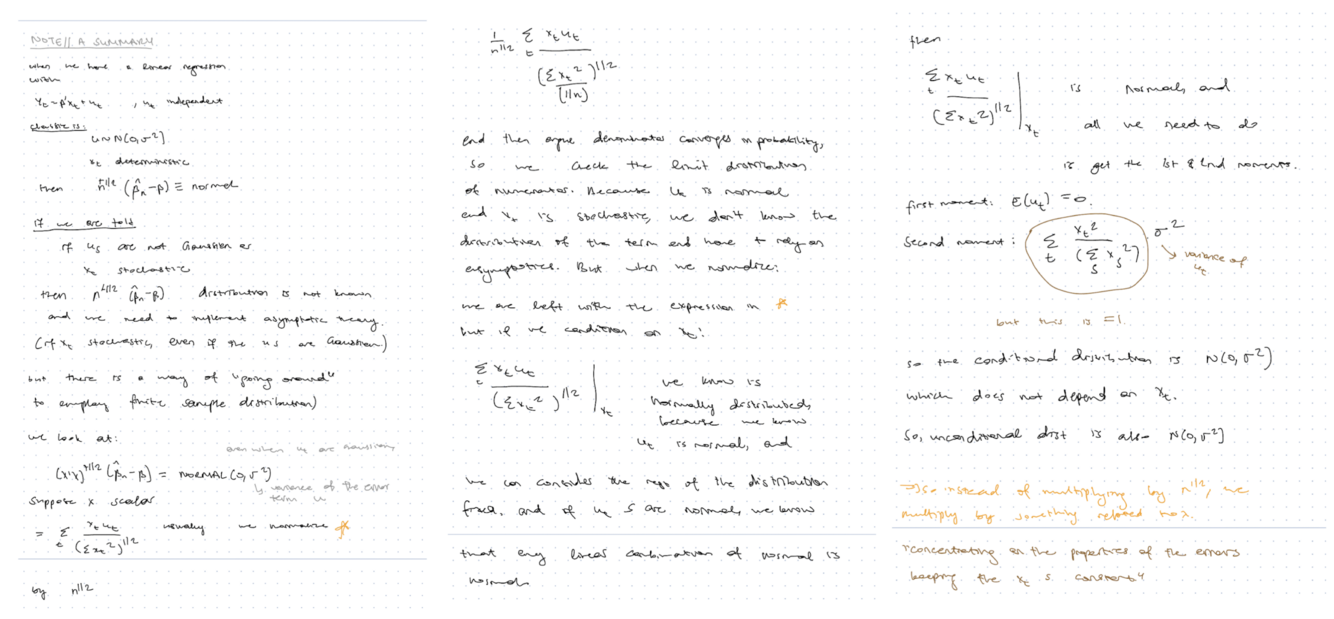 NOTE// A SUMMARY
when we have a linear regression
with
Yt = β'xt + ut , ut independent
classic is:
u ~ N(0, σ²)
xt deterministic
then n^1/2 (β̂n - β) ≡ normal
if we are told
if us are not Gaussian or
xt stochastic
then n^1/2 (β̂n - β) distribution is not known
and we need to implement asymptotic theory.
(if xt stochastic, even if the us are Gaussian)
but there is a way of "going around"
to employ finite sample distribution)
we look at:
even when ut are Gaussian,
(x'x)^1/2 (β̂n - β) = NORMAL(0, σ²)
↳ variance of the error
term u
suppose x scalar
= Σt xt ut / (Σ xt²)^1/2 usually we normalise *
by n^1/2
1/n^1/2 Σt xt ut / (Σ xt² / (1/n))^1/2
and then argue denominator converges in probability,
so we check the limit distribution
of numerator. Because ut is normal
and xt is stochastic, we don't know the
distribution of the term and have to rely on
asymptotics. But when we normalize:
we are left with the expression in *
but if we condition on xt:
Σt xt ut / (Σ xt²)^1/2 | xt
we know is
normally distributed,
because we know
ut is normal, and
we can consider the rest of the distribution
fixed. and if ut s are normal, we know
that any linear combination of normal is
normal
then
Σt xt ut / (Σ xt²)^1/2 | xt
is normal, and
all we need to do
is get the 1st & 2nd moments.
first moment: E(ut) = 0.
second moment: Σt xt² / (Σs xs²) · σ²
↳ variance of
ut
but this is = 1
so the conditional distribution is N(0, σ²)
which does not depend on xt.
So, unconditional dist is also N(0, σ²)
⇒ so instead of multiplying by n^1/2, we
multiply by something related to x.
"concentrating on the properties of the errors
keeping the xt s constant"